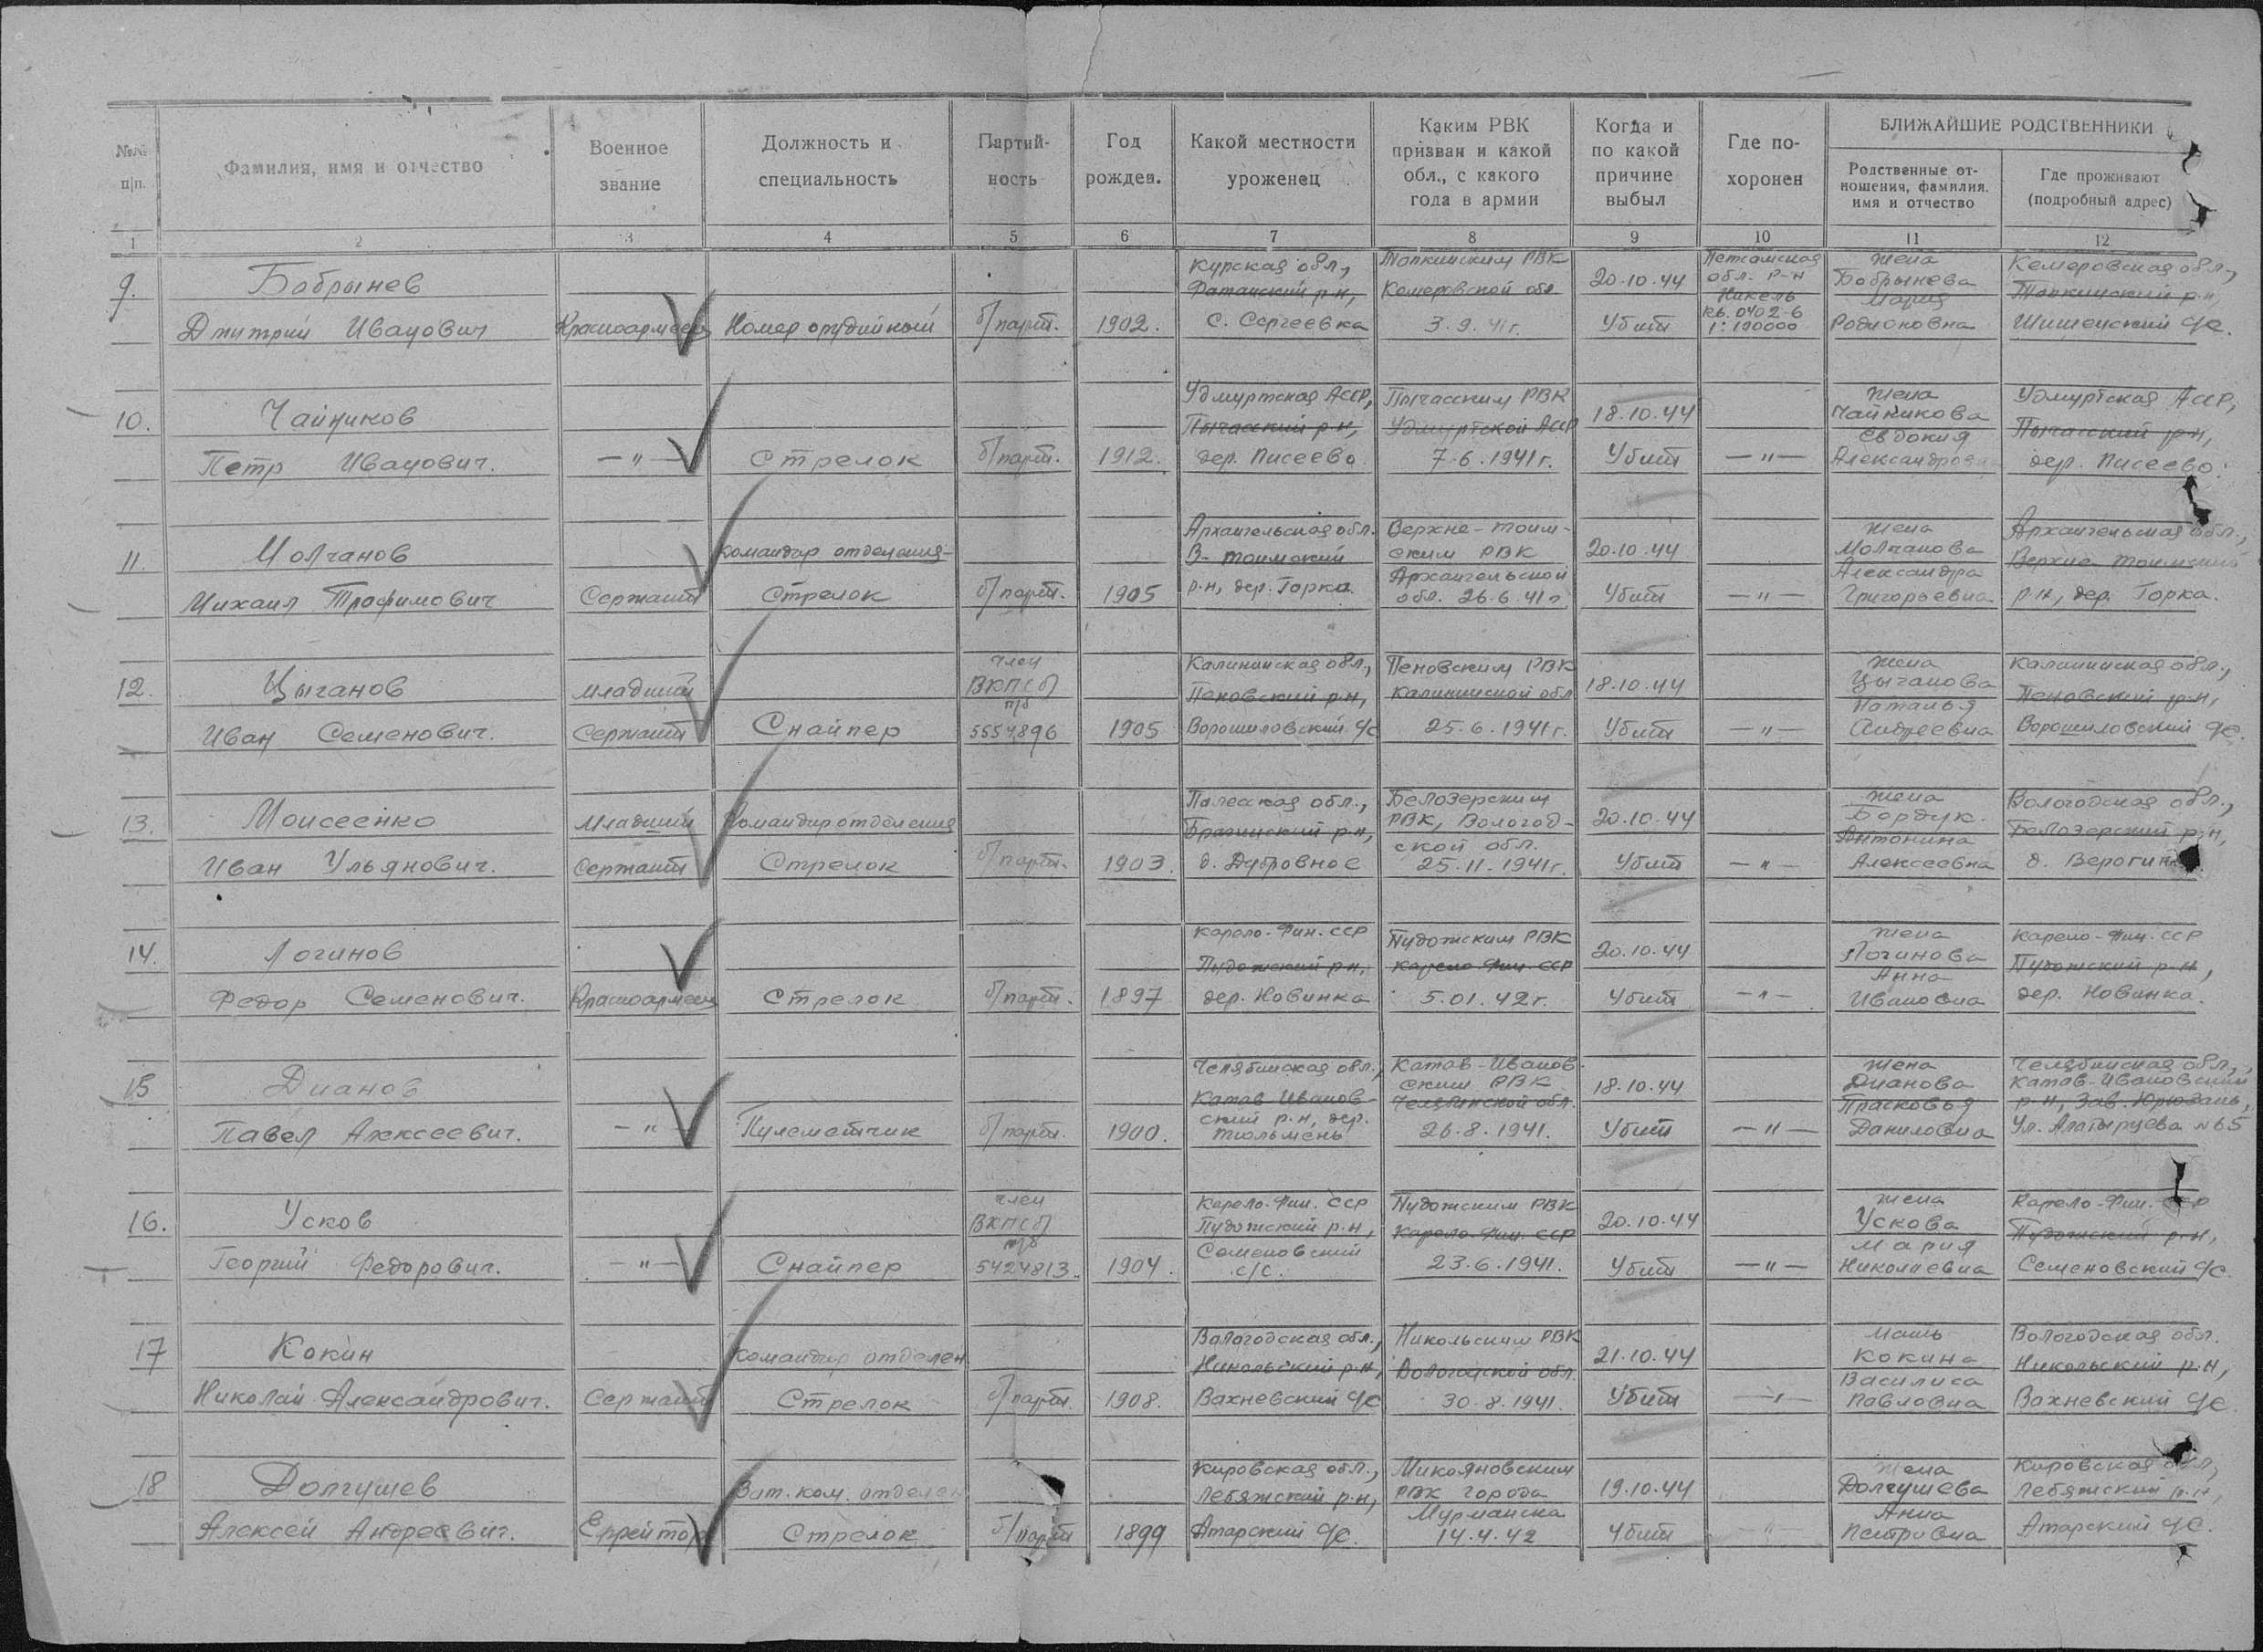 №№ п/п.
Фамилия, имя и отчество
Военное звание
Должность и специальность
Партий-
ность
Год рожден.
Какой местности уроженец
Каким РВК
призван и какой
обл., с какого
года в армии
Когда и
по какой
причине
выбыл
Где по-
хоронен
БЛИЖАЙШИЕ РОДСТВЕННИКИ
Родственные от-
ношения, фамилия,
имя и отчество
Где проживают
(подробный адрес)
1 2 3 4 5 6 7 8 9 10 11 12
9.
Бобрынев
Дмитрий Иванович
Красноармеец
Номер орудийный
б/парт.
1902.
Курская обл.,
Фатанский р-н,
С. Сергеевка
Топкинским РВК
Кемеровской обл
3.9.41г.
20.10.44
Убит
Петсамская
обл. р-н
Никель
кв. 0402-б
1:100000
жена
Бобрынева
Мария
Родионовна
Кемеровская обл.,
Топкинский р-н,
Шишенский с/с.
10.
Чайников
Петр Иванович.
—"—
Стрелок
б/парт.
1912.
Удмуртская АССР,
Пычасский р-н,
дер. Писеево
Пычасским РВК
Удмуртской АССР
7.6.1941г.
18.10.44
Убит
—"—
жена
Чайникова
Евдокия
Александровна
Удмуртская АССР,
Пычасский р-н,
дер. Писеево.
11.
Молчанов
Михаил Трофимович
Сержант
Командир отделения-
Стрелок
б/парт.
1905
Архангельская обл.
В-Тоимский
р-н, дер. Горка
Верхне-Тоим-
ским РВК
Архангельской
обл. 26.6.41г
20.10.44
Убит
—"—
жена
Молчанова
Александра
Григорьевна
Архангельская обл.,
Верхне Тоимский
р-н, дер. Горка.
12.
Цыганов
Иван Семенович.
младший
Сержант
Снайпер
член
ВКП(б)
п/б
5554896
1905
Калининская обл.,
Пеновский р-н,
Ворошиловский с/с
Пеновским РВК
Калининской обл
25.6.1941г.
18.10.44
Убит
—"—
жена
Цыганова
Наталья
Андреевна
Калининская обл.,
Пеновский р-н,
Ворошиловский с/с.
13.
Моисеенко
Иван Ульянович.
младший
Сержант
Командир отделения
Стрелок
б/парт.
1903.
Полесская обл.,
Брагинский р-н,
д. Дубровное
Белозерским
РВК, Вологод-
ской обл.
25.11.1941г.
20.10.44
Убит
—"—
жена
Бордук.
Антонина
Алексеевна
Вологодская обл.,
Белозерский р-н,
14.
Логинов
Федор Семенович.
Красноармеец
Стрелок
б/парт.
1897
Карело-Фин. ССР
Пудожский р-н,
дер. Новинка
Пудожским РВК
Карело-Фин. ССР
5.01.42г.
20.10.44
Убит
—"—
жена
Логинова
Анна
Ивановна
Карело-Фин. ССР
Пудожский р-н,
дер. Новинка.
15
Дианов
Павел Алексеевич.
—"—
Пулеметчик
б/парт.
1900.
Челябинская обл.,
Катав Иванов-
ский р-н, дер.
Тюльмень
Катав-Иванов-
ским РВК
Челябинской обл.
26.8.1941.
18.10.44
Убит
—"—
жена
Дианова
Прасковья
Даниловна
Челябинская обл.,
Катав-Ивановский
р-н, Зав. Юрюзань,
№65
16.
Усков
Георгий Федорович.
—"—
Снайпер
член
ВКП(б)
п/б
5424813.
1904.
Карело-Фин. ССР
Пудожский р-н,
Семеновский
с/с.
Пудожским РВК
Карело-Фин. ССР
23.6.1941.
20.10.44
Убит
—"—
жена
Ускова
Мария
Николаевна
Карело-Фин. ССР
Пудожский р-н,
Семеновский с/с.
17
Кокин
Николай Александрович.
Сержант
Командир отделен
Стрелок
б/парт.
1908.
Вологодская обл.,
Никольский р-н,
Вахневский с/с
Никольским РВК
Вологодской обл.
30.8.1941.
21.10.44
Убит
—"—
мать
Кокина
Василиса
Павловна
Вологодская обл.
Никольский р-н,
Вахневский с/с.
18
Долгушев
Алексей Андреевич.
Ефрейтор
Зам. ком. отделен
Стрелок
б/парт
1899
Кировская обл.,
Лебяжский р-н,
Атарский с/с.
Микояновским
РВК города
Мурманска
14.4.42
19.10.44
Убит
"
жена
Долгушева
Анна
Петровна
Кировская обл,
Лебяжский р-н,
Атарский с/с.